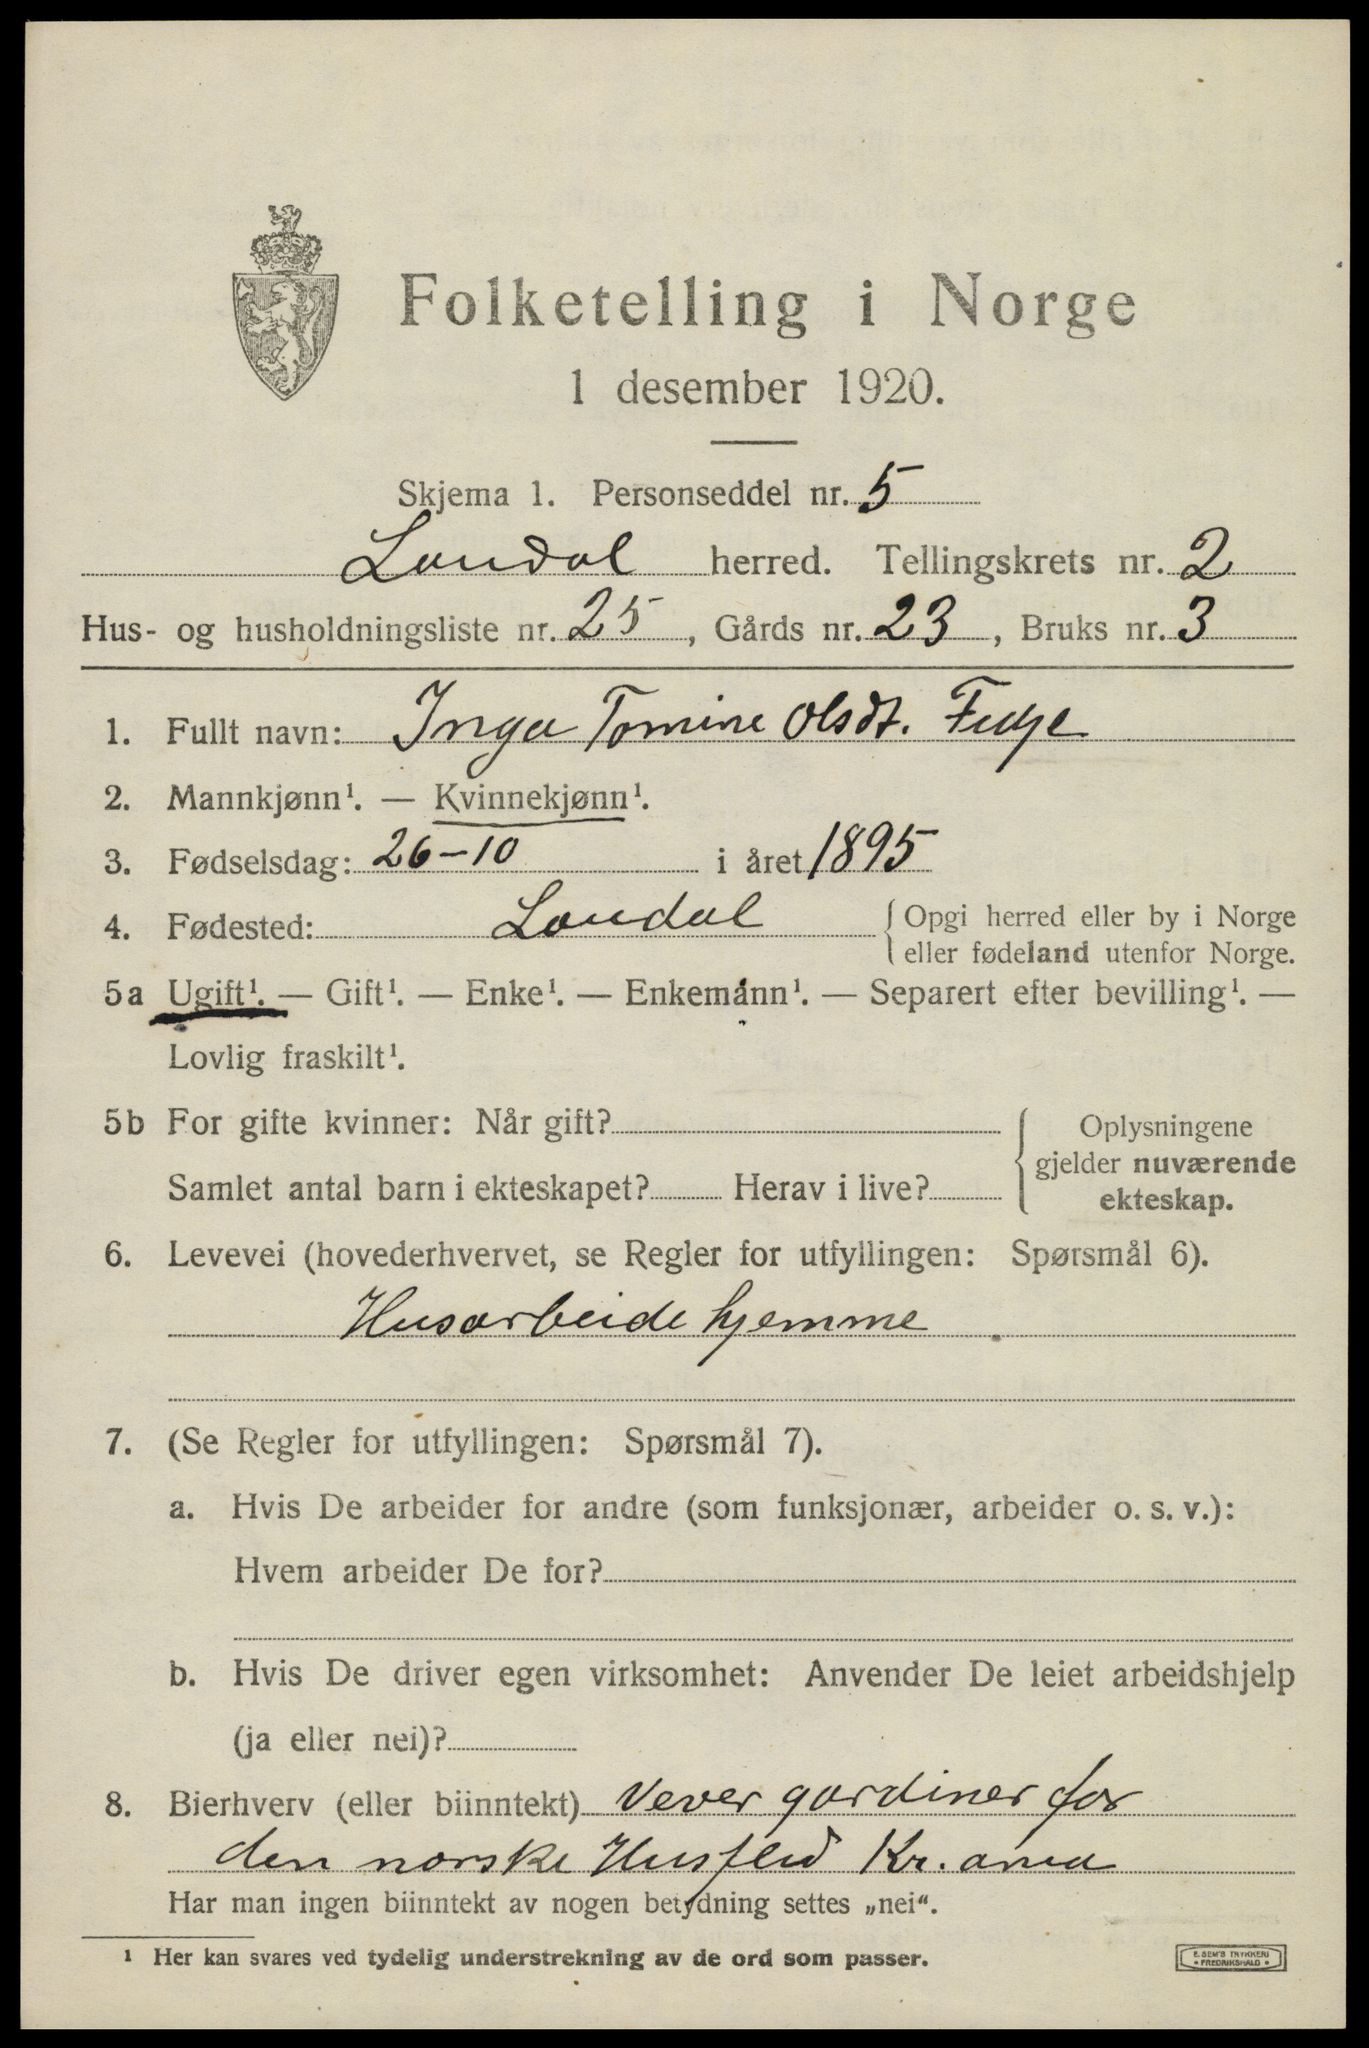 Folketelling i Norge
1 desember 1920.
Skjema 1. Personseddel nr. 5
Laudal herred. Tellingskrets nr. 2
Hus- og husholdningsliste nr. 25, Gårds nr. 23, Bruks nr. 3
1. Fullt navn: Inga Tomine Olsdt. Fidje
2. Mannkjønn¹. — Kvinnekjønn¹.
3. Fødselsdag: 26-10 i året 1895
4. Fødested: Laudal { Opgi herred eller by i Norge
eller fødeland utenfor Norge.
5a Ugift¹. — Gift¹. — Enke¹. — Enkemann¹. — Separert efter bevilling¹. —
Lovlig fraskilt¹.
5b For gifte kvinner: Når gift?
Samlet antal barn i ekteskapet? Herav i live?
{ Oplysningene
gjelder nuværende
ekteskap.
6. Levevei (hovederhvervet, se Regler for utfyllingen: Spørsmål 6).
Husarbeide hjemme
7. (Se Regler for utfyllingen: Spørsmål 7).
a. Hvis De arbeider for andre (som funksjonær, arbeider o. s. v.):
Hvem arbeider De for?
b. Hvis De driver egen virksomhet: Anvender De leiet arbeidshjelp
(ja eller nei)?
8. Bierhverv (eller biinntekt) Vever gardiner for
den norske Husflid Kr.ania
Har man ingen biinntekt av nogen betydning settes „nei“.
¹ Her kan svares ved tydelig understrekning av de ord som passer.
E. SEM'S TRYKKERI
• FREDRIKSHALD •